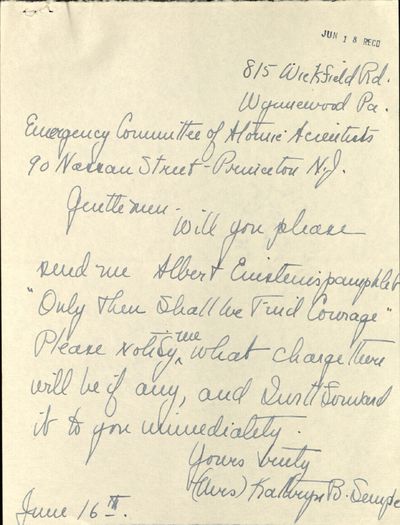 JUN 18 RECD
815 Wickfield Rd.
Wynnewood Pa.
Emergency Committee of Atomic Scientists
90 Nassau Street - Princeton N.J.
Gentlemen -
Will you please
send me Albert Einstein's pamphlet
"Only Then Shall We Find Courage"
Please notify me what charge there
will be if any, and I will forward
it to you immediately.
Yours truly
(Mrs) Kathryn B. Semple
June 16th.